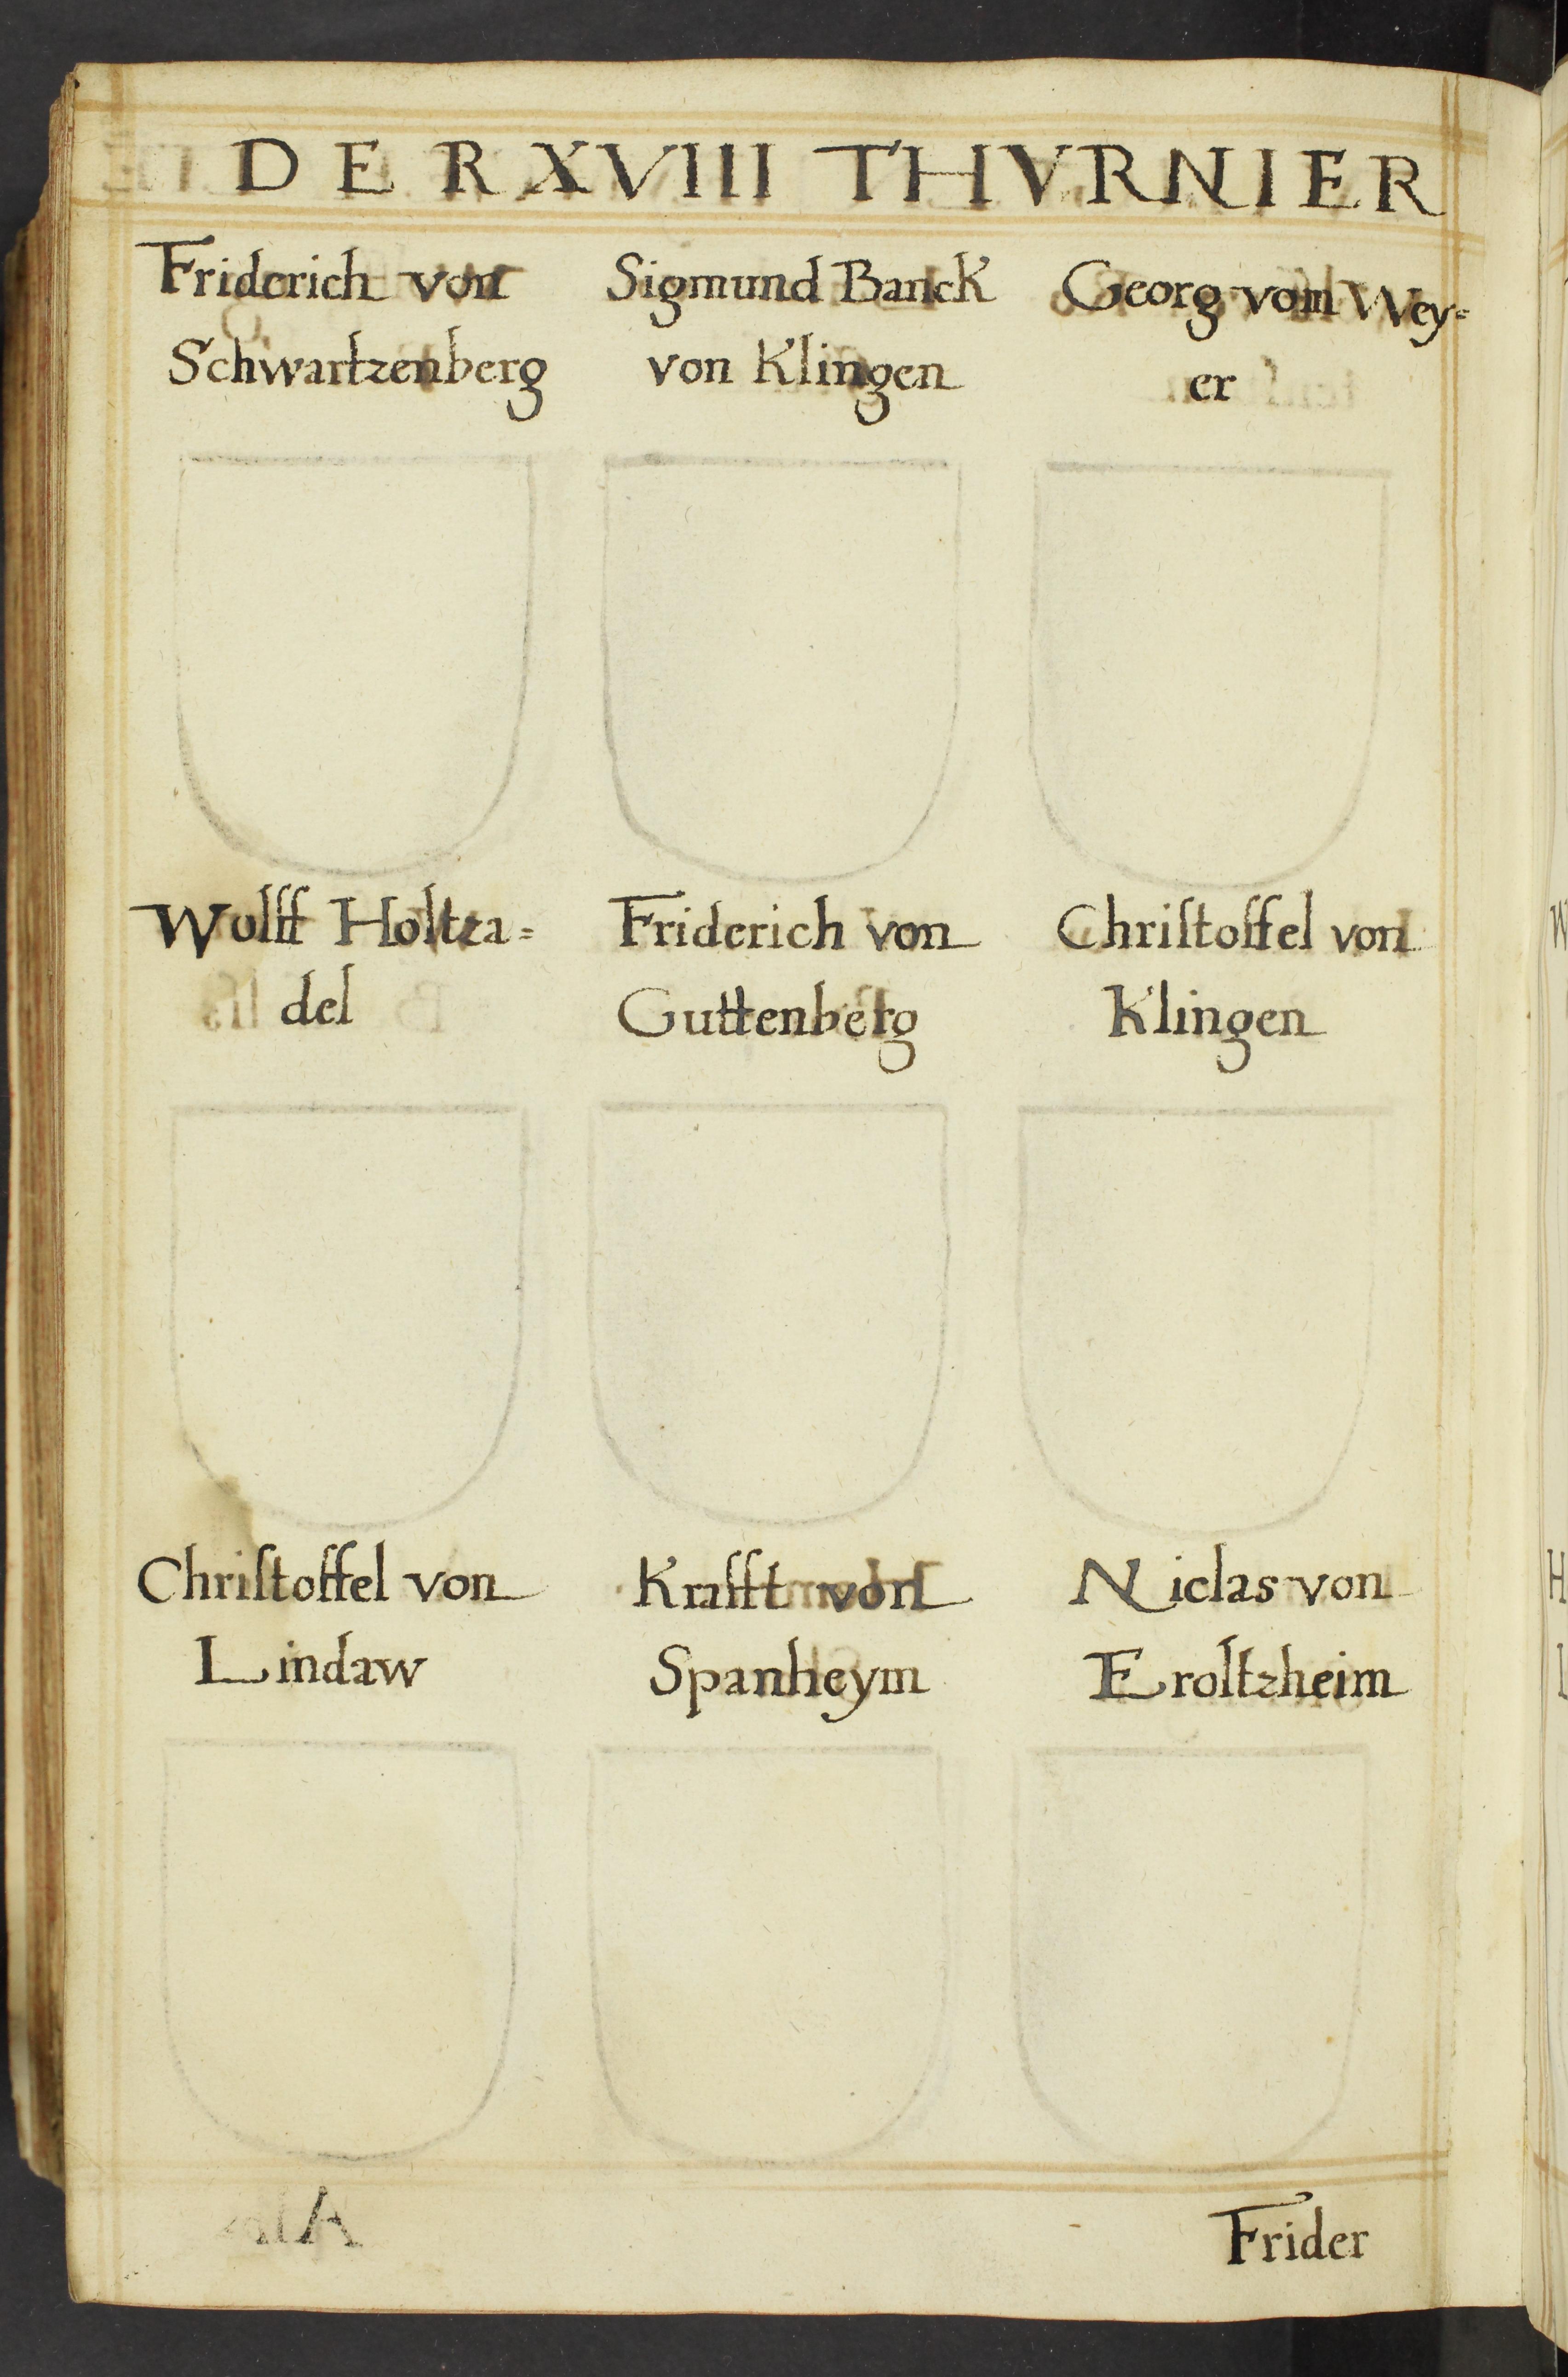 DER XVIII THVRNIER
Friderich von
Schwartzenberg
Sigmund Banck
von Klingen
Georg vom Wey=
er
Wolff Holtza=
del
Friderich von
Guttenberg
Chriſtoffel von
Klingen
Chriſtoffel von
Lindaw
Krafft von
Spanheym
Niclas von
Eroltzheim
Frider